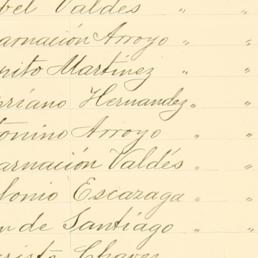 bel Valdés "
arnación Arroyo " "
pito Martinez " "
priano Hernandez " "
tonino Arroyo " "
arnación Valdés " "
tonio Escazaga " "
n de Santiago " "
risto Chaves